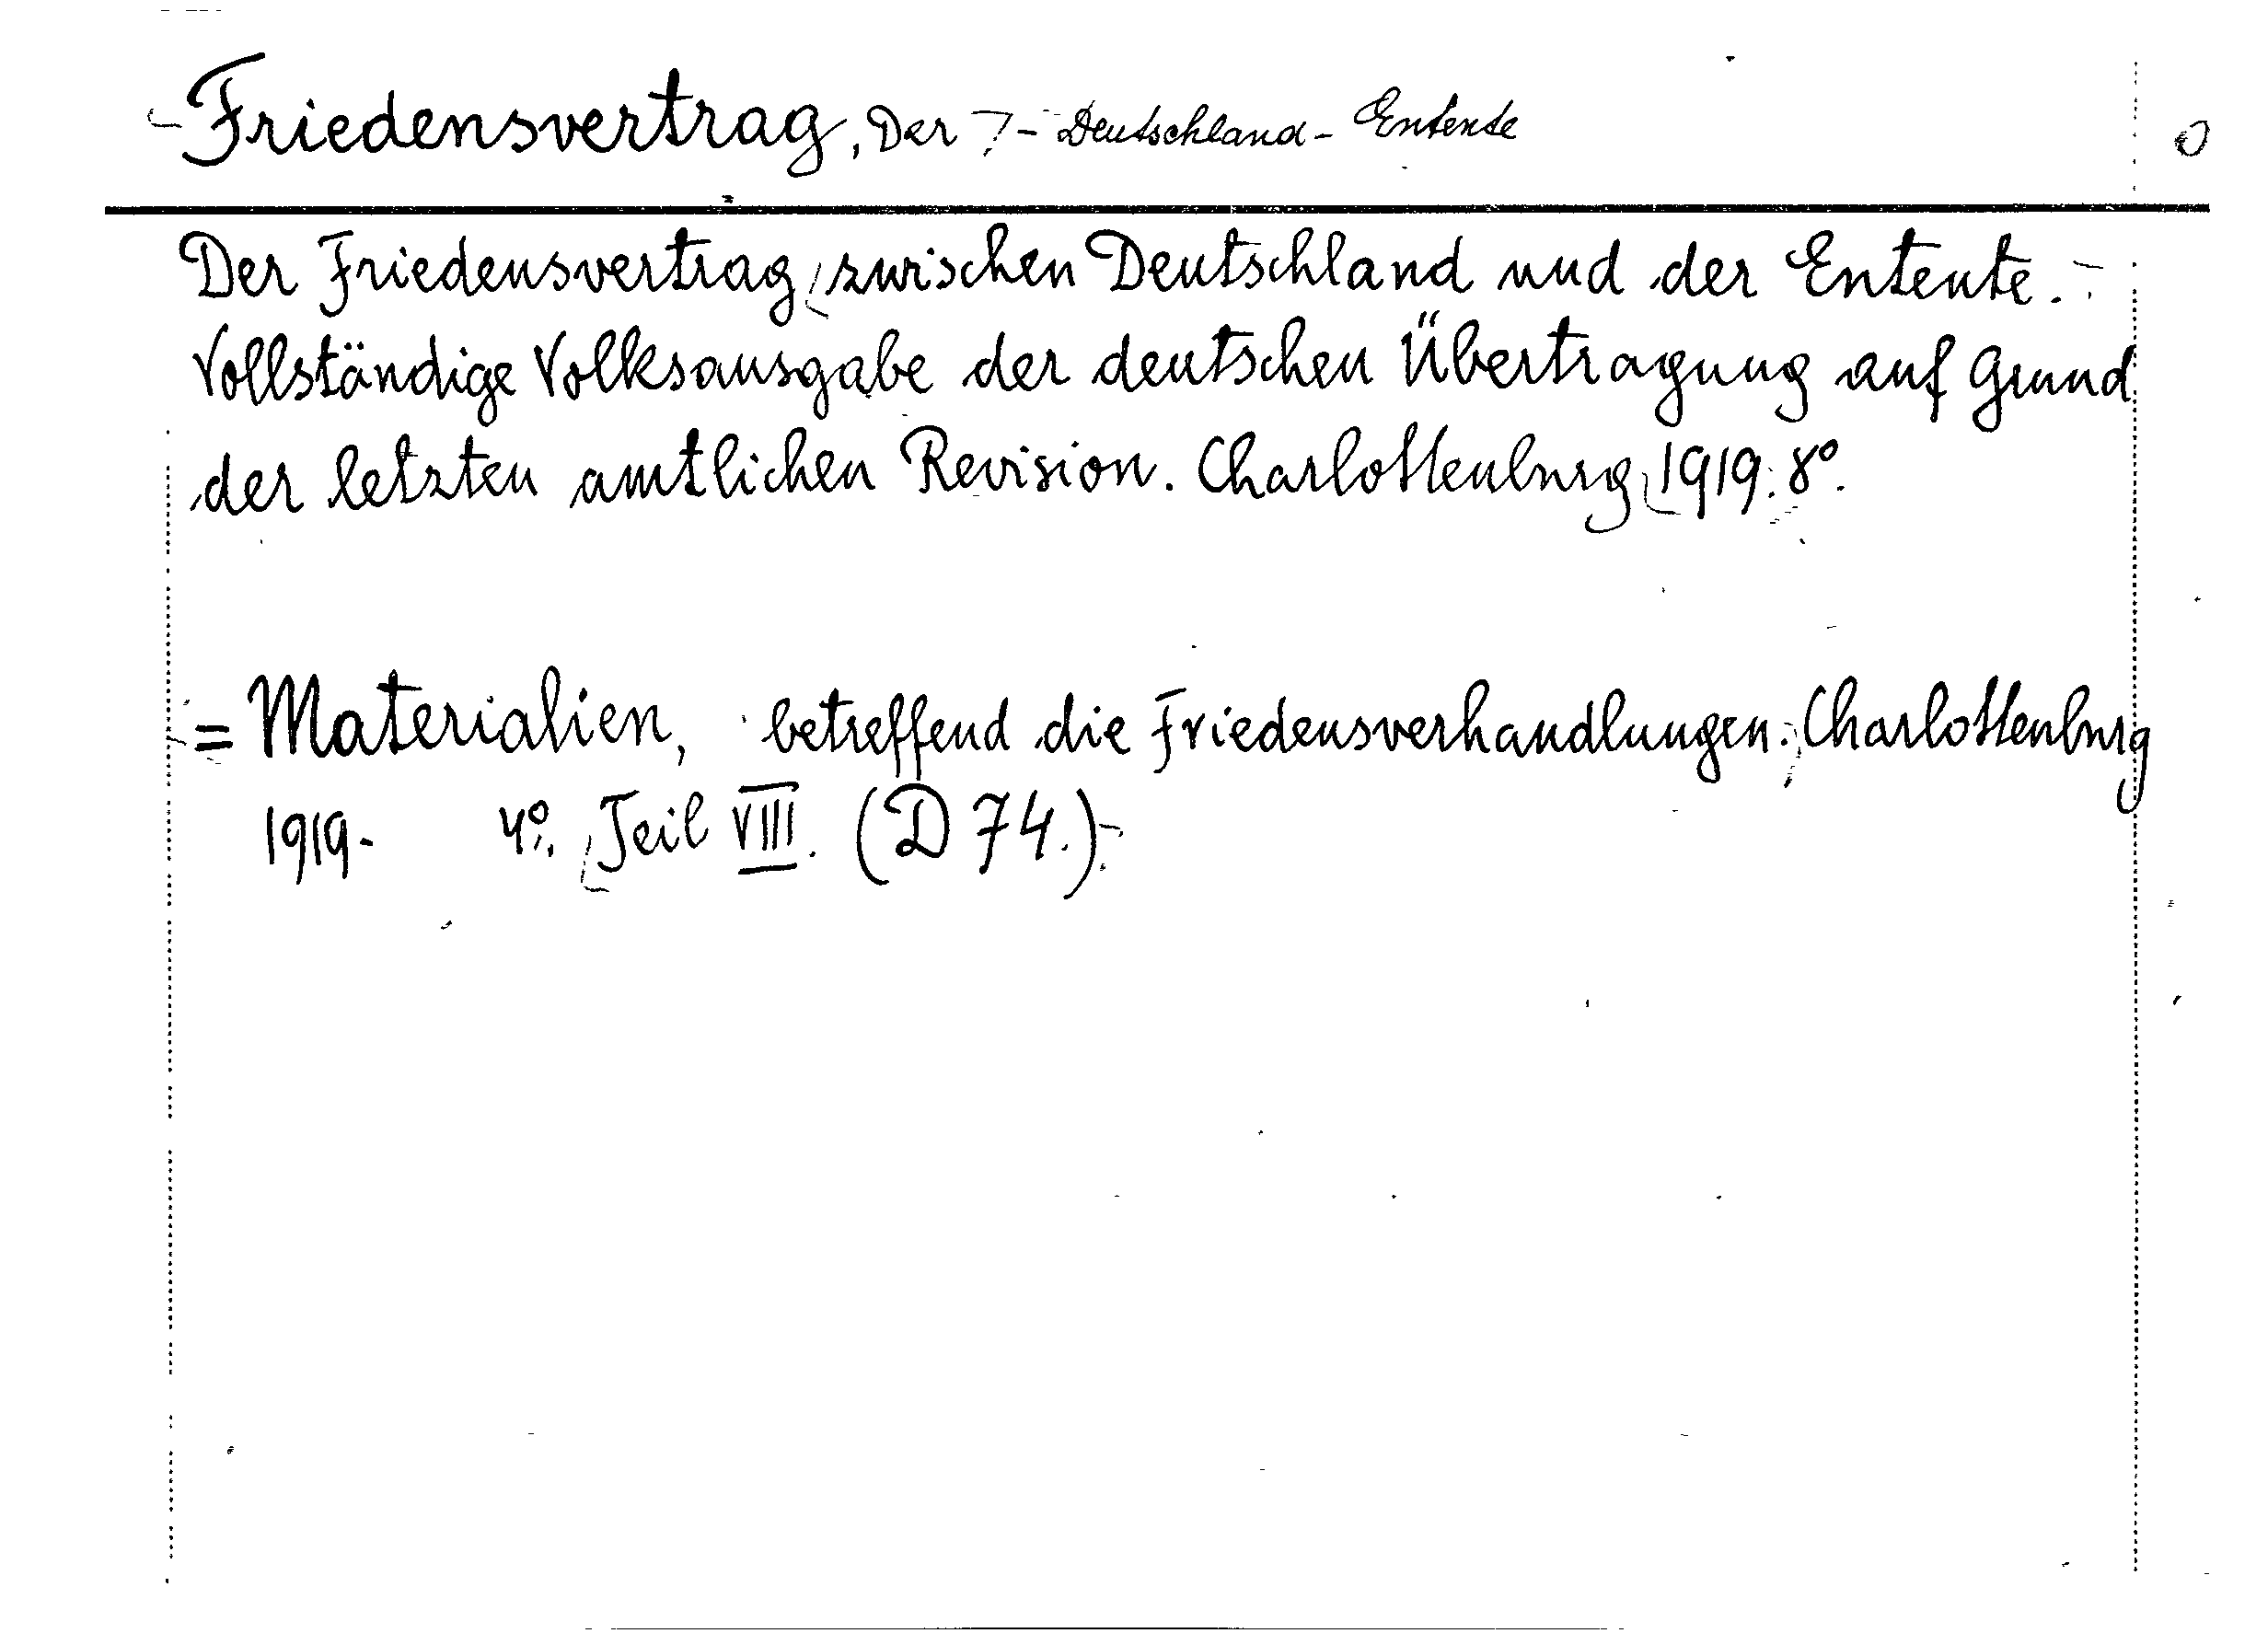 Friedensvertrag, Der - Deutschland - Entente
Der Friedensvertrag zwischen Deutschland und der Entente.
Vollständige Volksausgabe der deutschen Übertragung auf Grund
der letzten amtlichen Revision. Charlottenburg 1919. 8°.
= Materialien, betreffend die Friedensverhandlungen. Charlottenburg
1919- 4°. Teil VIII. (D 74.)